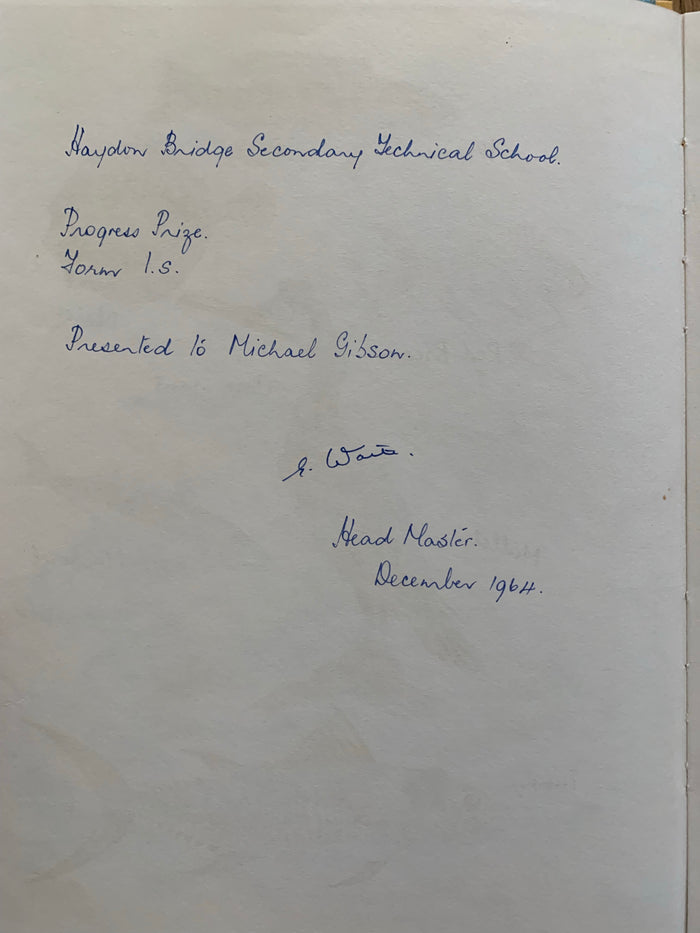 Haydon Bridge Secondary Technical School.
Progress Prize.
Form 1.S.
Presented to Michael Gibson.
Head Master.
December 1964.